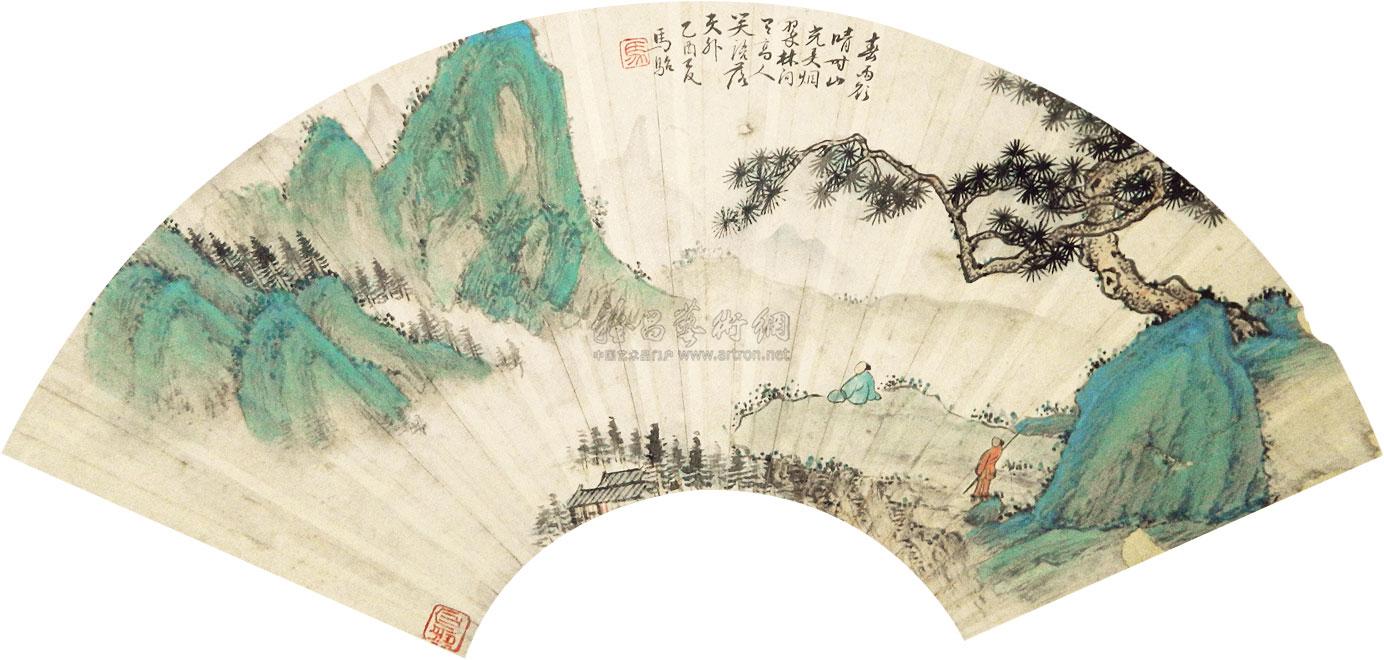 春雨欲
晴时山
光弄烟
翠林间
有高人
笑語落
天外
乙酉夏
馬駘
馬
雅昌藝術網
中国艺术品门户 www.artron.net